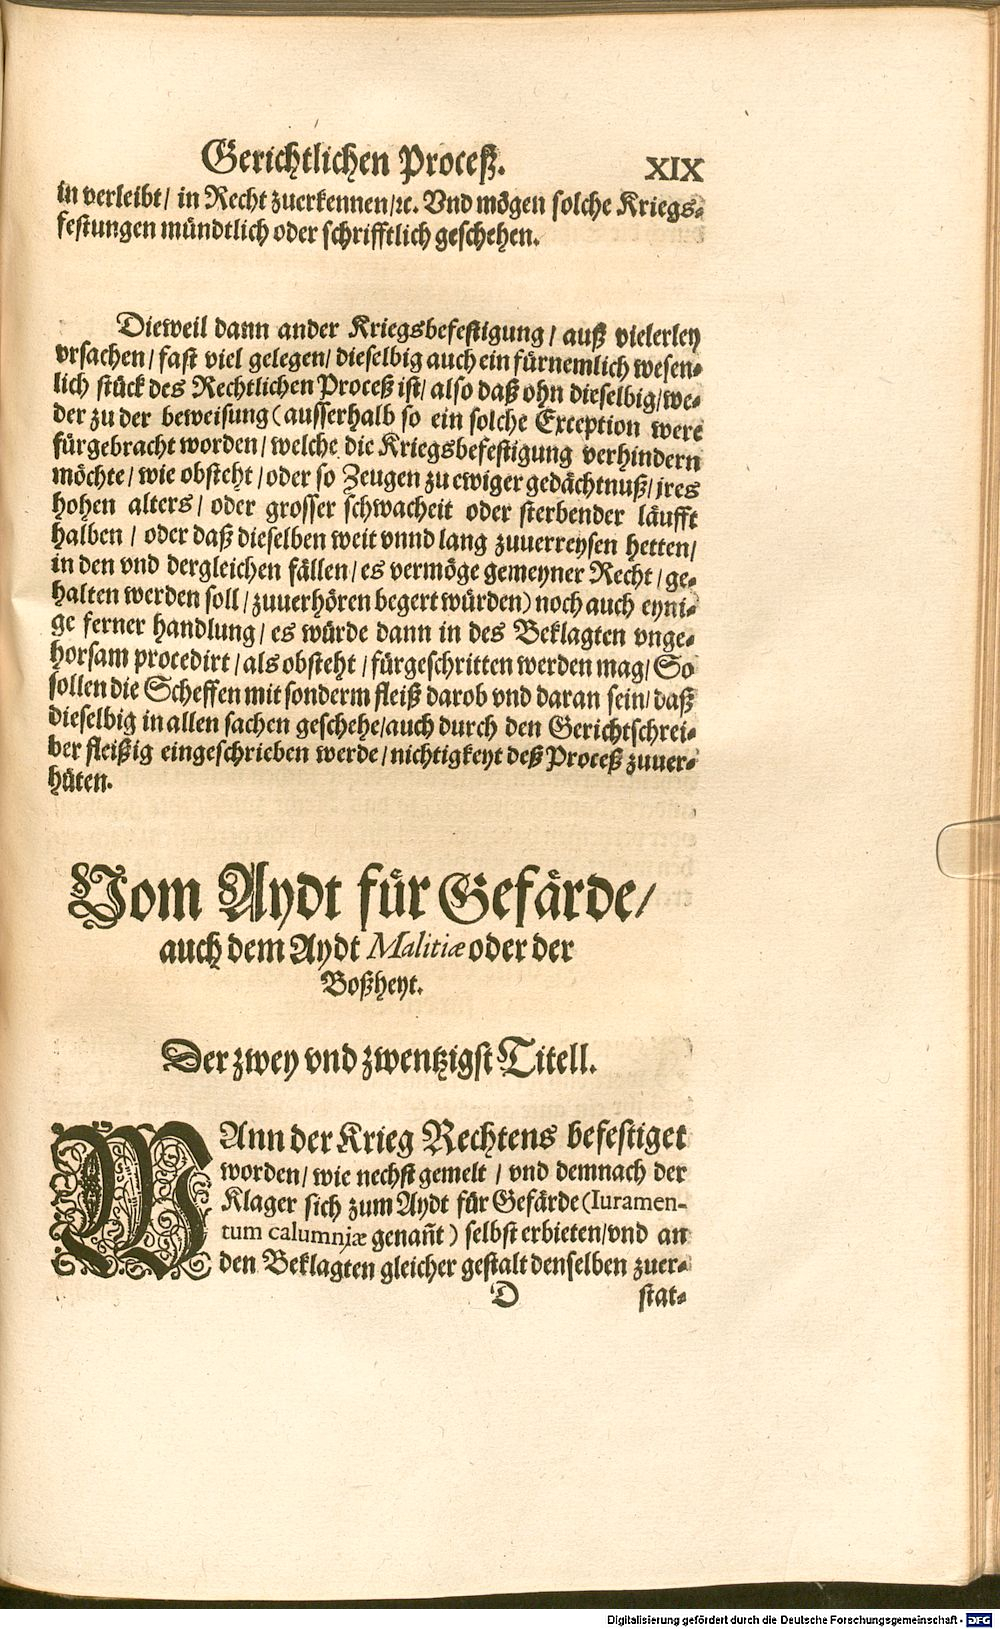 Gerichtlichen Proceß. XIX
in verleibt/ in Recht zuerkennen/ꝛc. Vnd mögen solche Kriegs⸗
festungen mündtlich oder schrifftlich geschehen.
Dieweil dann ander Kriegsbefestigung/ auß vielerley
vrsachen/ fast viel gelegen/ dieselbig auch ein fürnemlich wesen⸗
lich stück des Rechtlichen Proceß ist/ also daß ohn dieselbig/ we⸗
der zu der beweisung (ausserhalb so ein solche Exception were
fürgebracht worden/ welche die Kriegsbefestigung verhindern
möchte/ wie obsteht/ oder so Zeugen zu ewiger gedächtnuß/ jres
hohen alters/ oder grosser schwacheit oder sterbender läufft
halben/ oder daß dieselben weit vnnd lang zuuerreysen hetten/
in den vnd dergleichen fällen/ es vermöge gemeyner Recht/ ge⸗
halten werden soll/ zuuerhören begert würden) noch auch eyni⸗
ge ferner handlung/ es würde dann in des Beklagten vnge⸗
horsam procedirt/ als obsteht/ fürgeschritten werden mag/ So
sollen die Scheffen mit sonderm fleiß darob vnd daran sein/ daß
dieselbig in allen sachen geschehe/ auch durch den Gerichtschrei⸗
ber fleißig eingeschrieben werde/ nichtigkeyt deß Proceß zuuer⸗
hüten.
Vom Aydt für Gefärde/
auch dem Aydt Malitiæ oder der
Boßheyt.
Der zwey vnd zwentzigst Titell.
WAnn der Krieg Rechtens befestiget
worden/ wie nechst gemelt/ vnd demnach der
Klager sich zum Aydt für Gefärde (Iuramen-
tum calumniæ genañt) selbst erbieten/ vnd an
den Beklagten gleicher gestalt denselben zuer⸗
D stat⸗
Digitalisierung gefördert durch die Deutsche Forschungsgemeinschaft - DFG